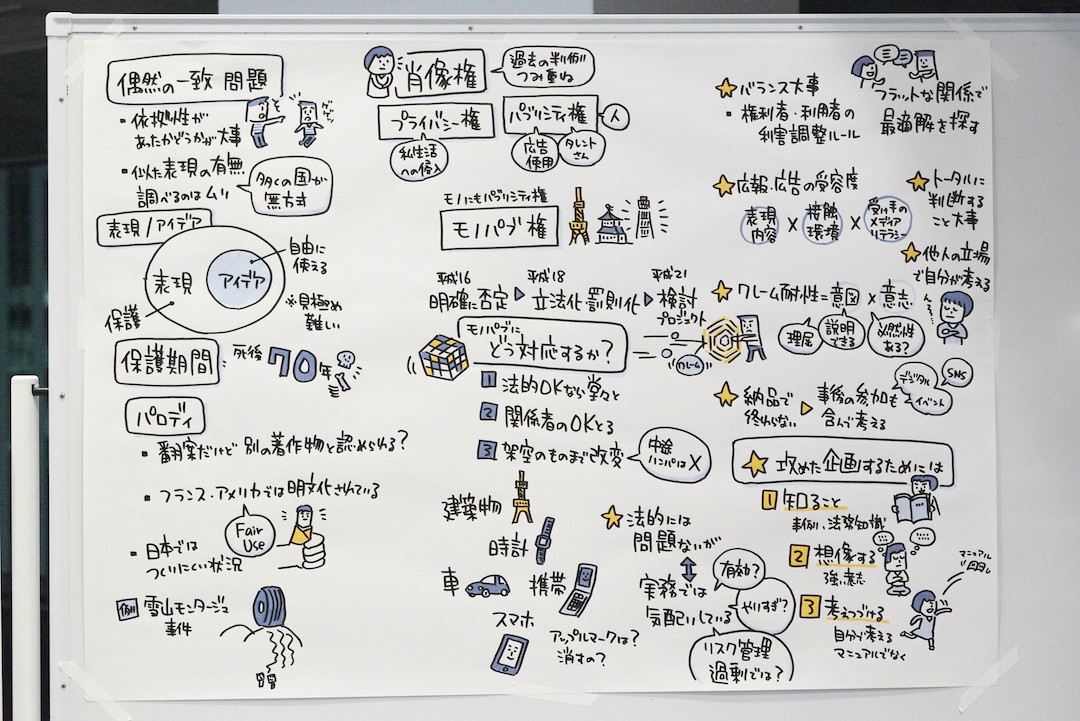 偶然の一致 問題
・依拠性が
あったかどうかが大事
・似た表現の有無
調べるのはムリ
多くの国が
無方式
表現/アイデア
表現
アイデア
自由に
使える
保護
※見極め
難しい
保護期間:
死後
70年
パロディ
・翻案だけど 別の著作物と認められる?
・フランス・アメリカでは明文化されている
Fair
Use
・日本では
ついにくい状況
例 雪山モンタージュ
事件
肖像権
過去の判例
つみ重ね
プライバシー権
パブリシティ権
人
私生活
への侵入
広告
使用
タレント
さん
モノにもパブリシティ権
モノパブ権
平成16
明確に否定
平成18
立法化・罰則化
平成21
検討
プロジェクト
モノパブに
どう対応するか?
クレーム
1 法的OKなら堂々と
2 関係者のOKとる
3 架空のものまで改変
中途
ハンパは×
建築物
時計
車
携帯
スマホ
アップルマークは?
消すの?
★法的には
問題ないが
実務では
気配りしている
有効?
やりすぎ?
リスク管理
過剰では?
★バランス大事
・権利者・利用者の
利害調整ルール
フラットな関係で
最適解を探す
★広報・広告の受容度
表現
内容
×
接触
環境
×
受け手の
メディア
リテラシー
★トータルに
判断する
こと大事
★他人の立場
で自分が考える
★クレーム耐性=意図×意志
理屈
説明
できる
必然性
ある?
★納品で
終わらない
事後の参加も
含んで考える
デジタル
SNS
イベント
★攻めた企画するためには
1 知ること
事例、法務知識
2 想像する
強い意志
3 考えつづける
自分で考える
マニュアルでなく
マニュアル